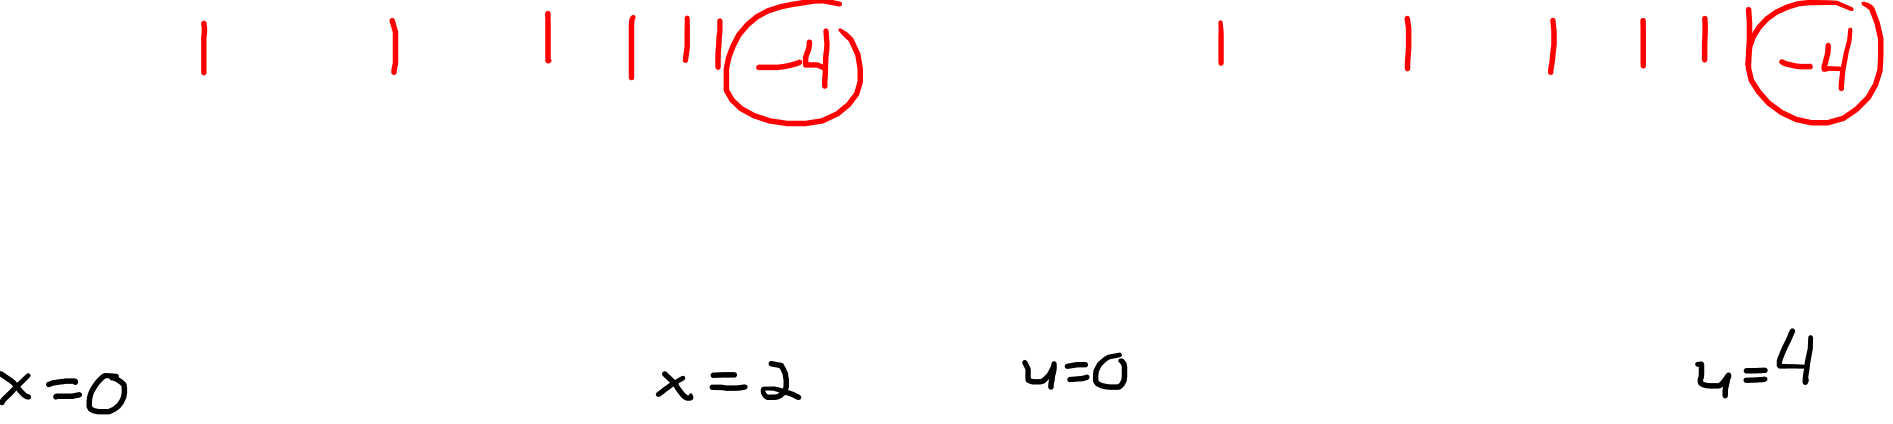 | | | | | | -4 | | | | | | -4
x=0 x=2 u=0 u=4